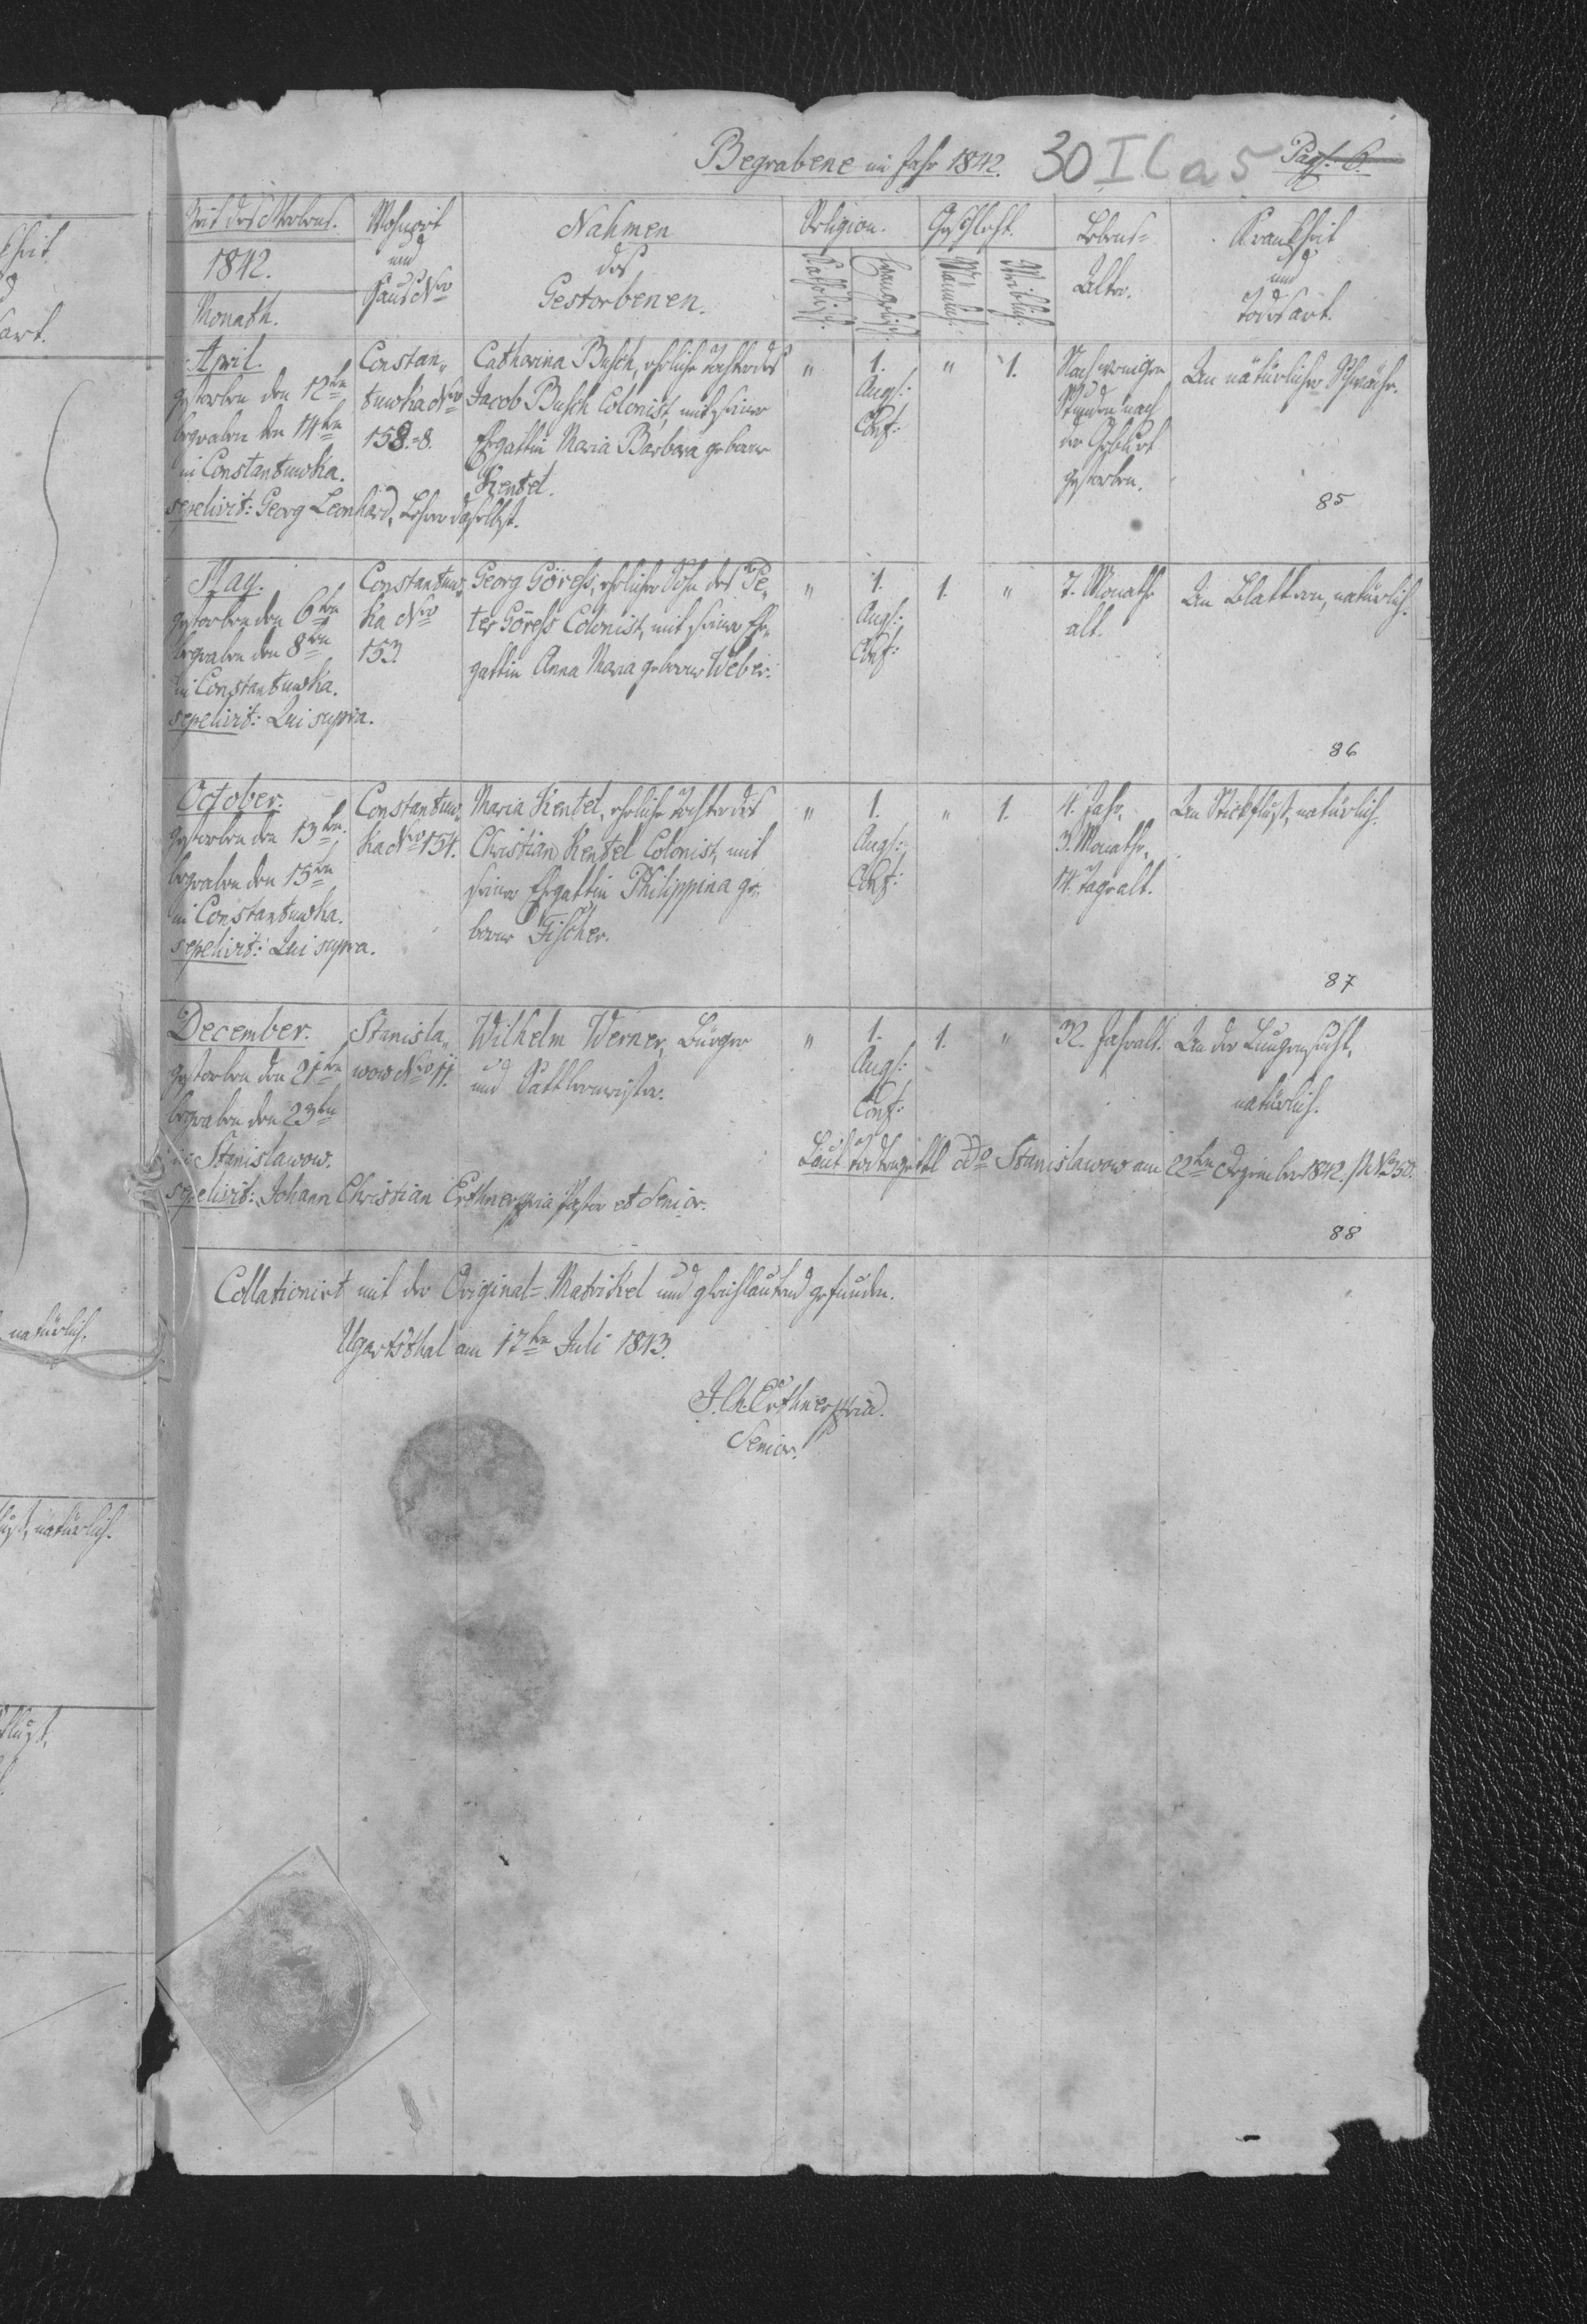 Begrabene im Jahr 1842. 30 I C a 5 Pag: 6.
Zeit des Sterbens.
1842.
Monath.
Wohnort
und
Haus Nro
Nahmen
des
Gestorbenen.
Religion.
Katholisch.
Evangelisch.
Geschlecht.
Männlich.
Weiblich.
Lebens-
Alter.
Krankheit
und
Todesart.
April.
gestorben den 12ten
begraben den 14ten
in Constantuwka.
sepelivit: Georg Leonhard, Lehrer daselbst.
Constan„
tuwka Nro
158.-8.
Catharina Busch, eheliche Tochter des
Jacob Busch Colonist, mit seiner
Ehgattin Maria Barbara geborne
Kentel.
"
1.
Augs:
Conf:
"
1.
Nach wenigen
Stunden nach
der Geburt
gestorben.
An natürlicher Schwäche.
85
May.
gestorben den 6ten
begraben den 8ten
in Constantuwka.
sepelivit: Qui supra.
Constantuw„
ka Nro
153.
Georg Göreß, ehelicher Sohn des Pe„
ter Göreß Colonist, mit seiner Eh„
gattin Anna Maria geborne Weber.
"
1.
Augs:
Conf:
1.
"
7. Monathe
alt.
An Blattern, natürlich.
86
October.
gestorben den 13ten
begraben den 15ten
in Constantuwka.
sepelivit: Qui supra.
Constantuw„
ka Nro 154.
Maria Kentel, eheliche Tochter des
Christian Kentel Colonist, mit
seiner Ehgattin Philippina ge„
borne Fischer.
"
1.
Augs:
Conf:
"
1.
4. Jahr,
3. Monathe,
14. Tage alt.
An Stickfluß, natürlich.
87
December.
gestorben den 21ten
begraben den 23ten
in Stanislawow.
sepelivit: Johann Christian Erthner mpria Pastor et Senior.
Stanisla„
wow Nro 11.
Wilhelm Werner, Bürger
und Sattlermeister.
"
1.
Augs:
Conf:
1.
"
32. Jahr alt.
An der Lungensucht,
natürlich.
Laut Todtenzettl ddo Stanislawow am 22ten Dezember 1842. N 350.
88
Collationirt mit der Original-Matrikel und gleichlautend gefunden.
Ugartsthal am 17ten Juli 1843.
J. Ch. Erthner mpria.
Senior.
natürlich.